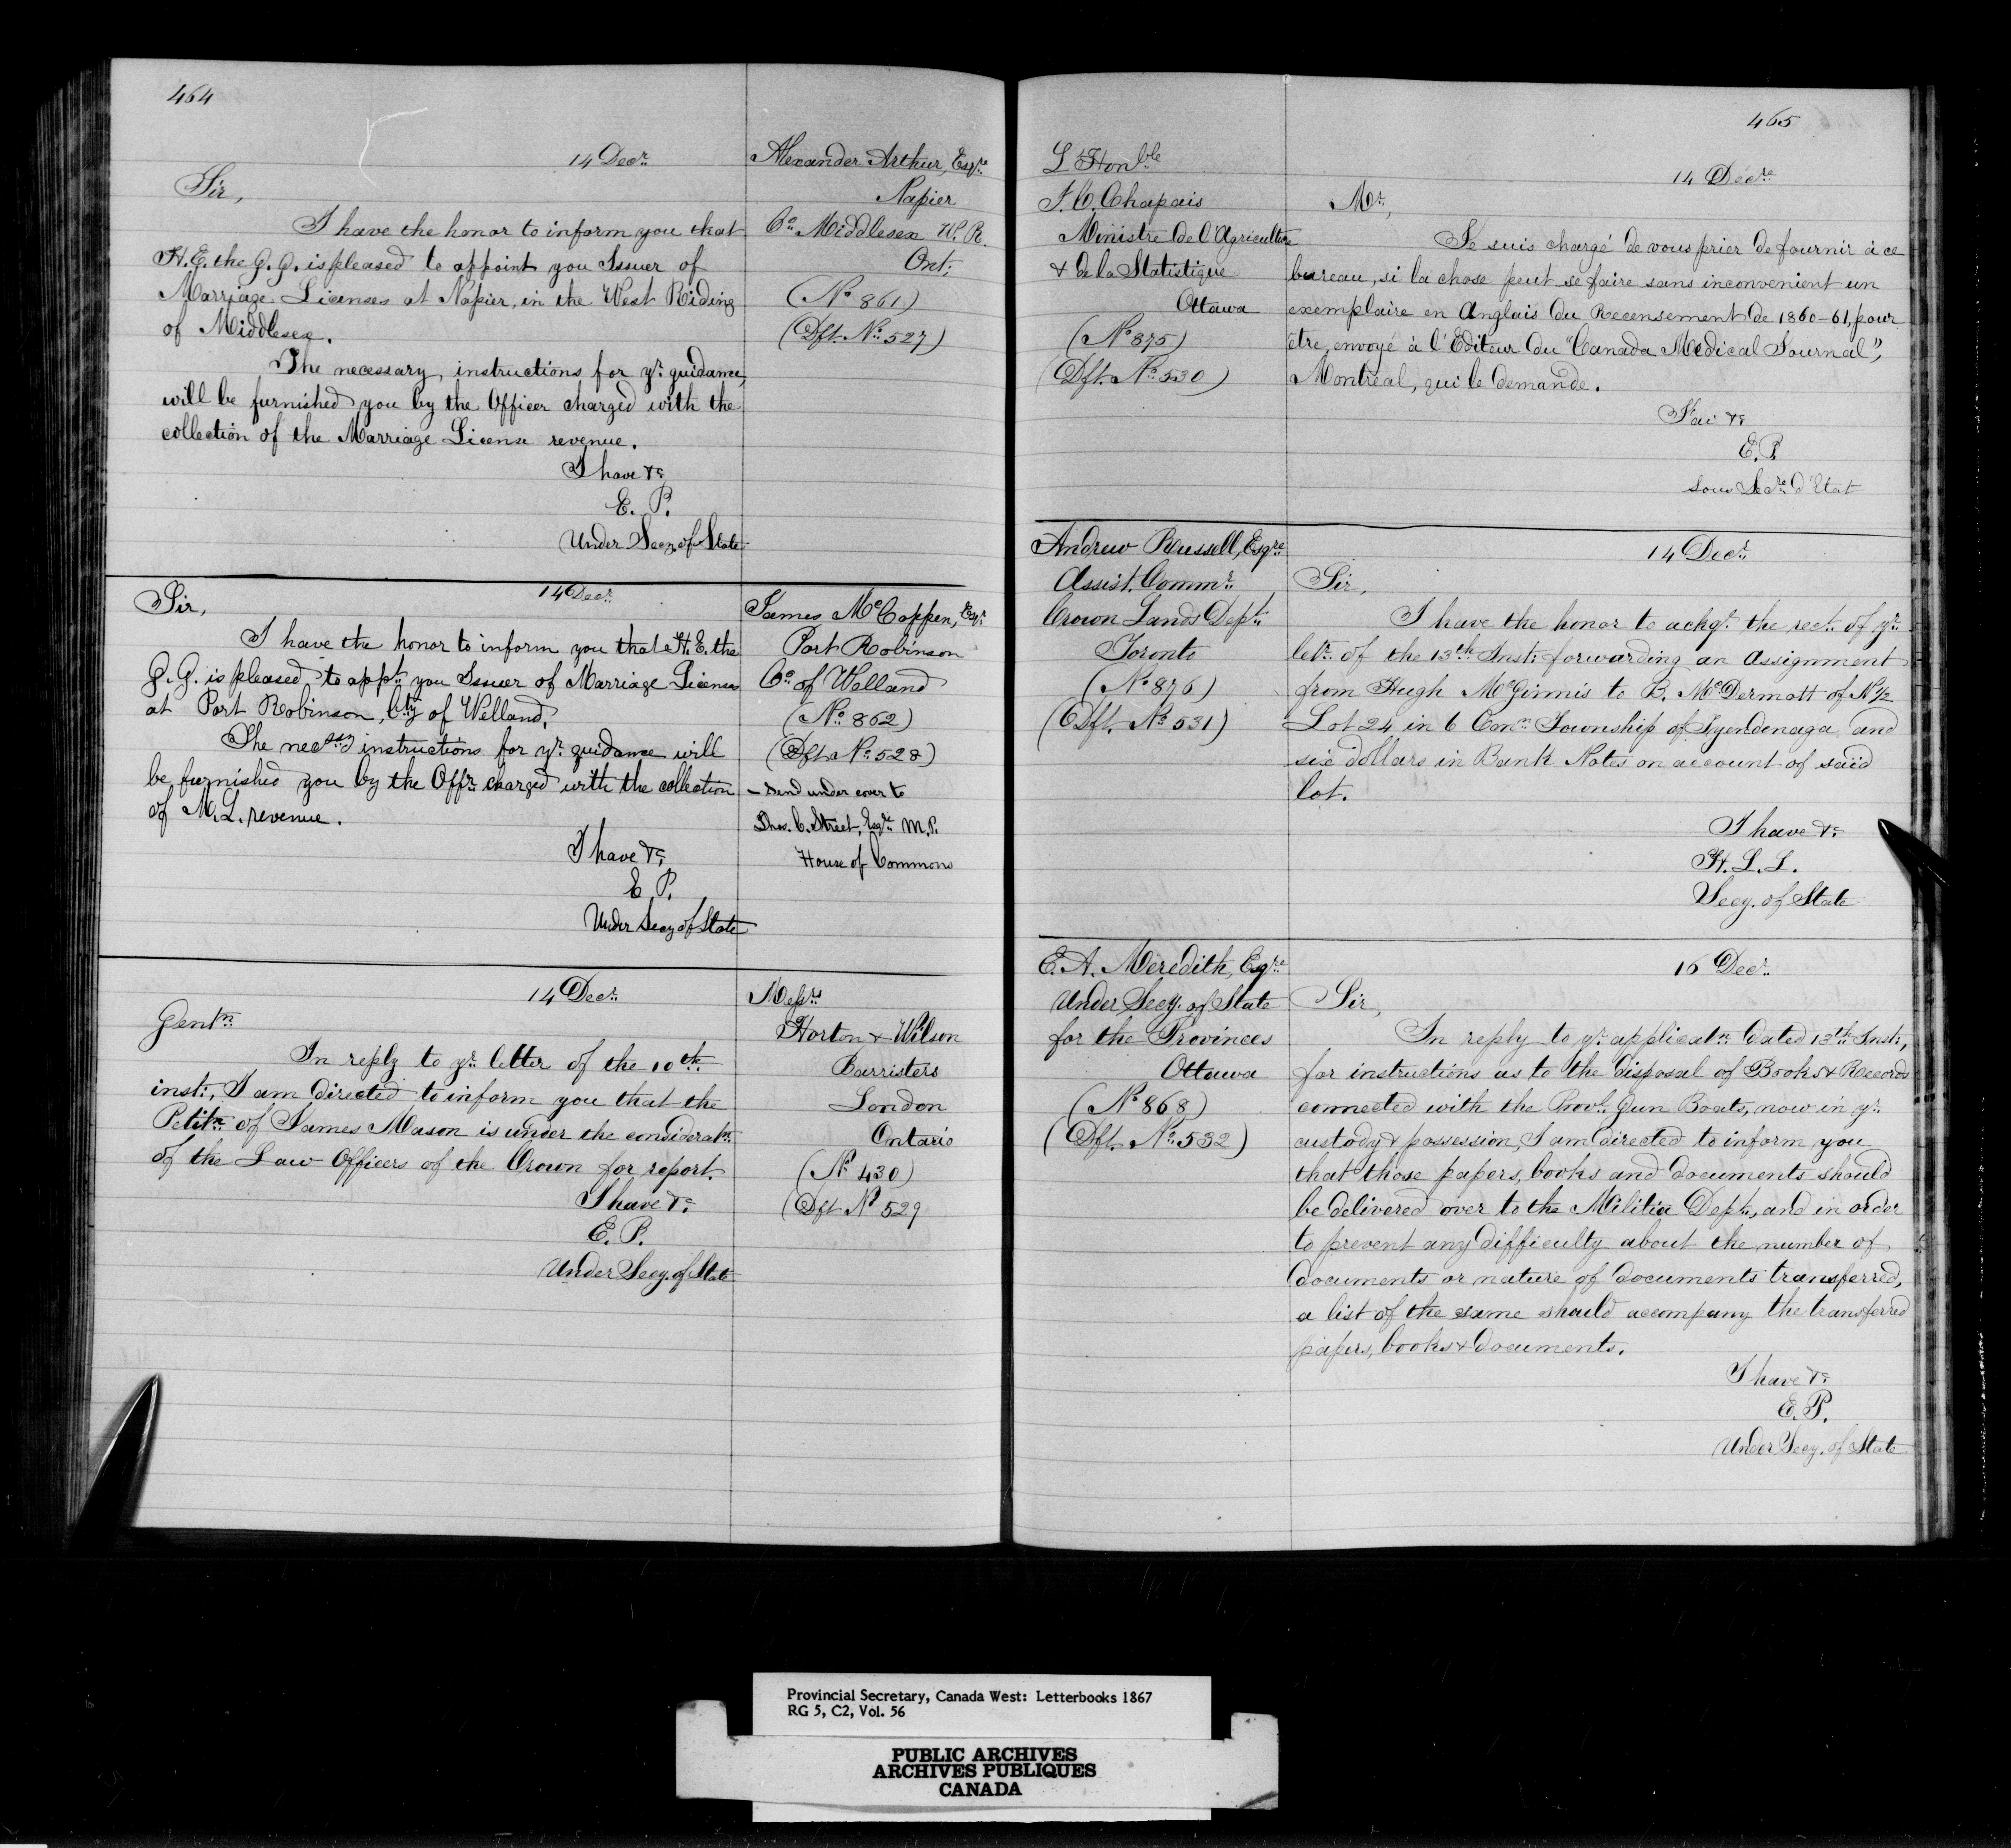 464
14 Decr.
Alexander Arthur, Esqr.
Napier
Co. Middlesex W. R.
Ont:
(No. 861)
(Dft. No. 527)
Sir,
I have the honor to inform you that
H. E. the G. G. is pleased to appoint you Issuer of
Marriage Licenses at Napier, in the West Riding
of Middlesex.
The necessary instructions for yr. guidance,
will be furnished you by the Officer charged with the
collection of the Marriage License revenue.
I have &c
E. P.
Under Secy. of State
14 Decr.
James McCoppen, Esqr.
Port Robinson
Co. of Welland
(No. 862)
(Dft. No. 528)
– Send under cover to
Thos. C. Street, Esqre. M.P.
House of Commons
Sir,
I have the honor to inform you that H. E. the
G. G. is pleased to appt. you Issuer of Marriage Licenses
at Port Robinson, Cty of Welland.
The necssry instructions for yr. guidance will
be furnished you by the Offr. charged with the collection
of M. L. revenue.
I have &c
E. P.
Under Secy of State
14 Decr.
Messrs
Horton & Wilson
Barristers
London
Ontario
(No 430)
(Dft No 529
Gentn.
In reply to yr. letter of the 10th.
inst:, I am directed to inform you that the
Petitn. of James Mason is under the consideratn.
of the Law Officers of the Crown for report.
I have &c
E. P.
Under Secy. of State
465
L'Honble
J. C. Chapais
Ministre de l'Agriculture
& de la Statistique
Ottawa
(No. 875)
(Dft. No. 530)
14 Décre
Mr.,
Je suis chargé de vous prier de fournir à ce
bureau, si la chose peut se faire sans inconvenient un
exemplaire en Anglais du Recensement de 1860-61, pour
être envoyé à l'Editeur du "Canada Medical Journal",
Montreal, qui le demande.
J'ai &c
E. P.
Sous Secre. d'Etat
Andrew Russell, Esqre.
Assist. Commr.
Crown Lands Dept.
Toronto
(No. 876)
(Dft. No. 531)
14 Decr.
Sir,
I have the honor to ackge. the rect. of yr.
letr. of the 13th. Inst: forwarding an Assignment
from Hugh McGinnis to B. McDermott of N 1/2
Lot 24 in 6 Conn. Township of Tyendenaga and
six dollars in Bank Notes on account of said
lot.
I have &c
H. L. L.
Secy. of State
E. A. Meredith, Esqre
Under Secy. of State
for the Provinces
Ottawa
(No. 868)
(Dft. No. 532)
16 Decr.
Sir,
In reply to yr. applicatn. dated 13th. Inst:,
for instructions as to the disposal of Books & Records
connected with the Provl. Gun Boats, now in yr.
custody & possession, I am directed to inform you
that those papers, books and documents should
be delivered over to the Militia Dept., and in order
to prevent any difficulty about the number of
documents or nature of documents transferred,
a list of the same should accompany the transferred
papers, books & documents.
I have &c
E. P.
Under Secy. of State
Provincial Secretary, Canada West: Letterbooks 1867
RG 5, C2, Vol. 56
PUBLIC ARCHIVES
ARCHIVES PUBLIQUES
CANADA